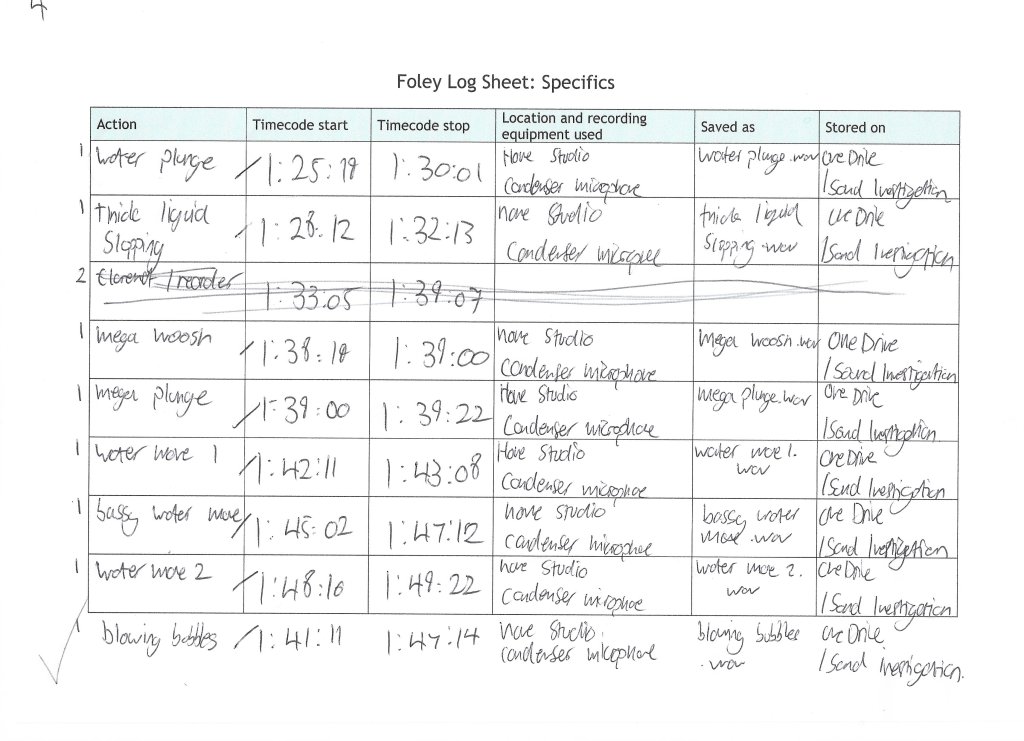 4
Foley Log Sheet: Specifics
Action Timecode start Timecode stop Location and recording equipment used Saved as Stored on
1 Water plunge /1:25:19 1:30:01 Home Studio Condenser microphone water plunge.wav OneDrive /Sound Investigation
1 thick liquid Slopping /1:28:12 1:32:13 home Studio Condenser microphone thick liquid Slopping.wav OneDrive /Sound Investigation
2 1:33:05 1:39:07
1 mega woosh /1:38:19 1:39:00 home Studio Condenser microphone mega woosh.wav OneDrive /Sound Investigation
1 mega plunge /1:39:00 1:39:22 Home Studio Condenser microphone mega plunge.wav OneDrive /Sound Investigation
1 Water move 1 /1:42:11 1:43:08 Home Studio Condenser microphone water move 1.wav OneDrive /Sound Investigation
1 bassy water move /1:45:02 1:47:12 home studio condenser microphone bassy water move.wav OneDrive /Sound Investigation
1 Water move 2 /1:48:16 1:49:22 home Studio Condenser microphone water move 2.wav OneDrive /Sound Investigation
1 blowing bubbles /1:41:11 1:47:14 home Studio condenser microphone blowing bubbles.wav OneDrive /Sound Investigation.